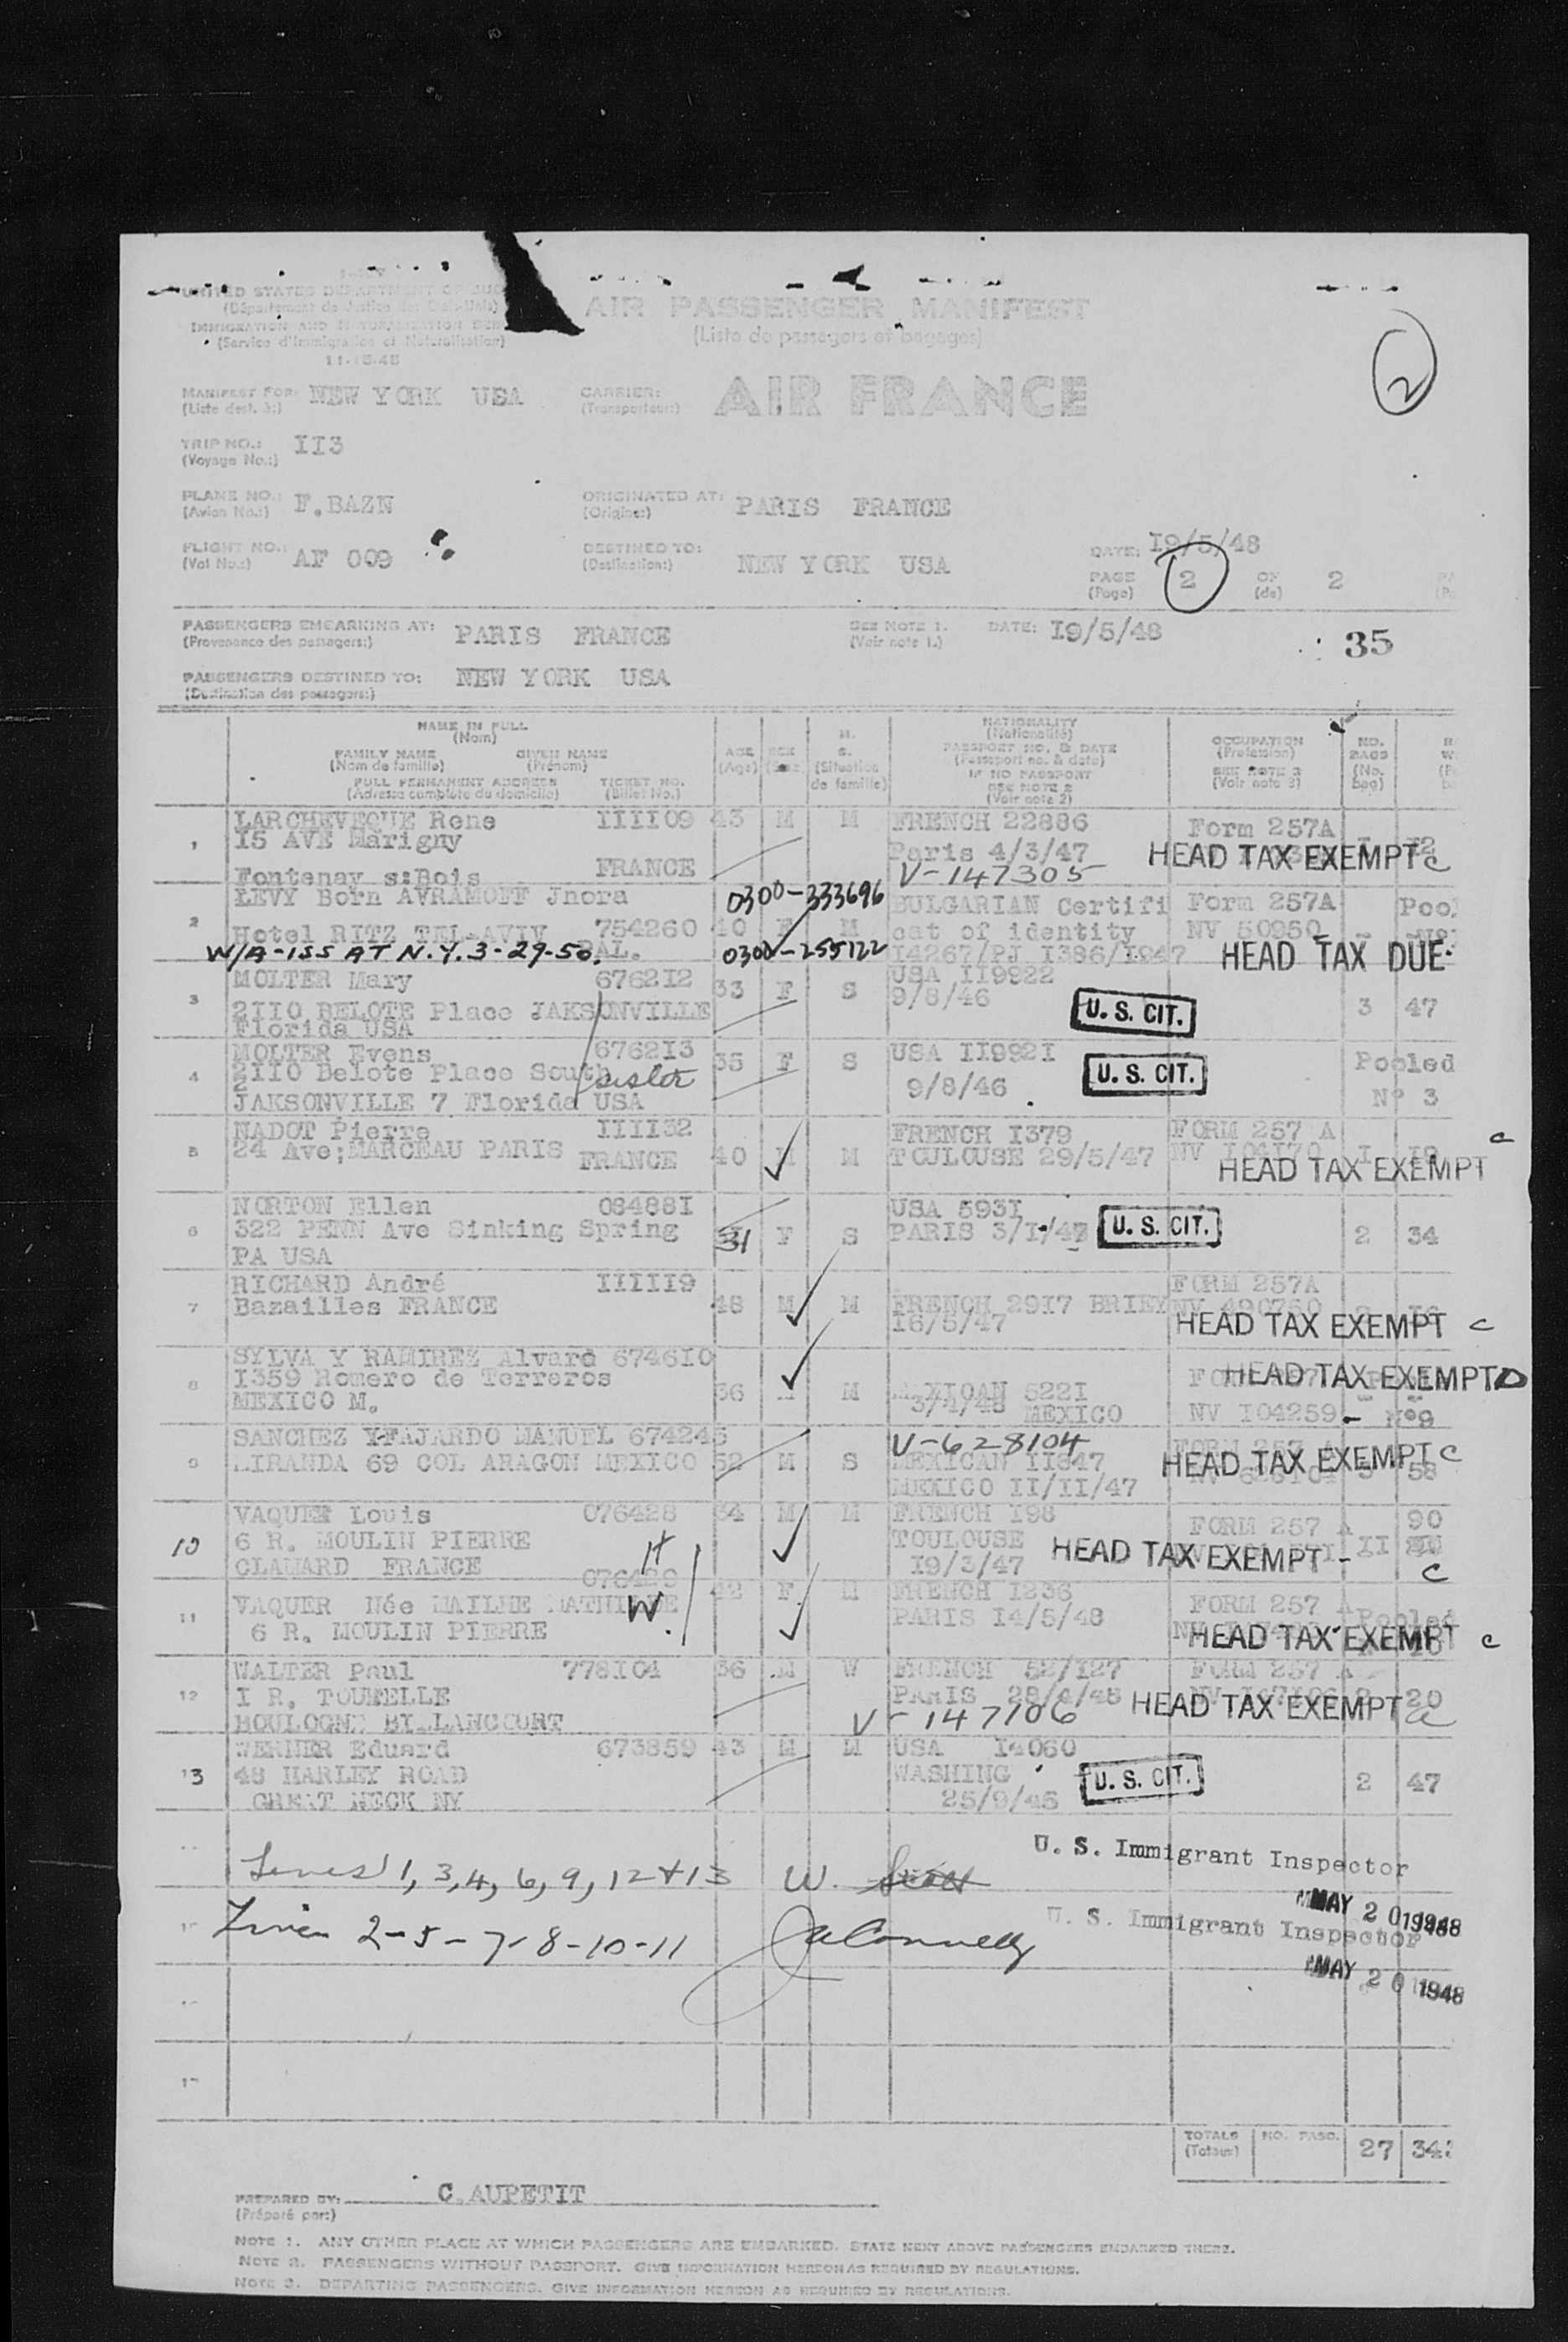 UNITED STATES DEPARTMENT OF JUS
(Département de Justice des Etats-Unis)
IMMIGRATION AND NATURALIZATION SER
(Service d'Immigration et Naturalisation)
11-15-45
AIR PASSENGER MANIFEST
(Liste de passagers et bagages)
2
MANIFEST FOR: NEW YORK USA
(Liste dest. à:)
CARRIER: AIR FRANCE
(Transporteur:)
TRIP NO.: II3
(Voyage No.:)
PLANE NO.: F.BAZN
(Avion No.:)
ORIGINATED AT: PARIS FRANCE
(Origine:)
FLIGHT NO.: AF 009
(Vol No.:)
DESTINED TO: NEW YORK USA
(Destination:)
DATE: I9/5/48
PAGE 2 OF 2
(Page) (de)
PASSENGERS EMBARKING AT: PARIS FRANCE
(Provenance des passagers:)
SEE NOTE 1. DATE: I9/5/48
(Voir note 1.)
35
PASSENGERS DESTINED TO: NEW YORK USA
(Destination des passagers:)
NAME IN FULL
(Nom)
FAMILY NAME GIVEN NAME
(Nom de famille) (Prénom)
FULL PERMANENT ADDRESS TICKET NO.
(Adresse complète du domicile) (Billet No.)
AGE
(Age)
SEX
M.
S.
(Situation
de famille)
NATIONALITY
(Nationalité)
PASSPORT NO. & DATE
(Passeport no. & date)
IF NO PASSPORT
SEE NOTE 2
(Voir note 2)
OCCUPATION
(Profession)
SEE NOTE 3
(Voir note 3)
NO.
BAGS
(No.
bag)
1 LARCHEVEQUE Rene IIII09 43 M M FRENCH 22886 Form 257A
I5 AVE Marigny Paris 4/3/47 HEAD TAX EXEMPT c 12
Fontenay s:Bois FRANCE V-147305
2 LEVY Born AVRAMOFF Jnora 0300-333696 BULGARIAN Certifi Form 257A Pool
Hotel RITZ TEL-AVIV 754260 40 F M cat of identity NV 50950
W/A-ISS AT N.Y. 3-29-50. PAL. 0300-255122 I4267/PJ I386/I947 HEAD TAX DUE
3 MOLTER Mary 676212 33 F S USA II9922
2IIO BELOTE Place JAKSONVILLE 9/8/46 U. S. CIT. 3 47
Florida USA
4 MOLTER Evens 676213 35 F S USA II992I Pooled
2IIO Belote Place South sister 9/8/46 U. S. CIT. N° 3
2
JAKSONVILLE 7 Florida USA
5 NADOT Pierre IIII32 FRENCH I379 FORM 257 A c
24 Ave;MARCEAU PARIS FRANCE 40 M M TOULOUSE 29/5/47 NV I04I70 I I9
HEAD TAX EXEMPT
6 NORTON Ellen 08488I USA 593I
322 PENN Ave Sinking Spring 31 F S PARIS 3/I/47 U. S. CIT. 2 34
PA USA
7 RICHARD André IIIII9 FORM 257A
Bazailles FRANCE 48 M M FRENCH 29I7 BRIEY NV 490760
I6/5/47 HEAD TAX EXEMPT c
8 SYLVA Y RAMIREZ Alvaro 6746I0 HEAD TAX EXEMPT D
I359 Romero de Terreros 36 M M MEXICAN 522I
MEXICO M. 3/4/48 MEXICO NV I04259 - N°9
9 SANCHEZ Y FAJARDO MANUEL 674245 V-628104 FORM 257 A
MIRANDA 69 COL ARAGON MEXICO 52 M S MEXICAN II647 HEAD TAX EXEMPT c 58
MEXICO II/II/47
10 VAQUER Louis 076428 34 M M FRENCH I98 FORM 257 A 90
6 R. MOULIN PIERRE H TOULOUSE HEAD TAX EXEMPT - II
CLAMARD FRANCE I9/3/47 c
076429
11 VAQUER Née MAILHE MATHILDE W. 42 F M FRENCH I236 FORM 257 A Pooled
6 R. MOULIN PIERRE PARIS I4/5/48 HEAD TAX EXEMPT c
12 WALTER Paul 778I04 36 M W FRENCH 52/I27 FORM 257 A
I R. TOURELLE PARIS 28/4/48 HEAD TAX EXEMPT 20
BOULOGNE BILLANCOURT V-147106 c
13 WERNER Eduard 673859 43 M M USA I4060
48 HARLEY ROAD WASHING U. S. CIT. 2 47
GREAT NECK NY 25/9/46
U. S. Immigrant Inspector
Lines 1, 3, 4, 6, 9, 12 + 13 W.
MAY 20 1948
U. S. Immigrant Inspector
Lines 2-5-7-8-10-11 Connelly
MAY 20 1948
TOTALS NO. PASS. 27
(Totaux)
PREPARED BY: C.AUPETIT
(Préparé par:)
NOTE 1. ANY OTHER PLACE AT WHICH PASSENGERS ARE EMBARKED. STATE NEXT ABOVE PASSENGERS EMBARKED THERE.
NOTE 2. PASSENGERS WITHOUT PASSPORT. GIVE INFORMATION HEREON AS REQUIRED BY REGULATIONS.
NOTE 3. DEPARTING PASSENGERS. GIVE INFORMATION HEREON AS REQUIRED BY REGULATIONS.